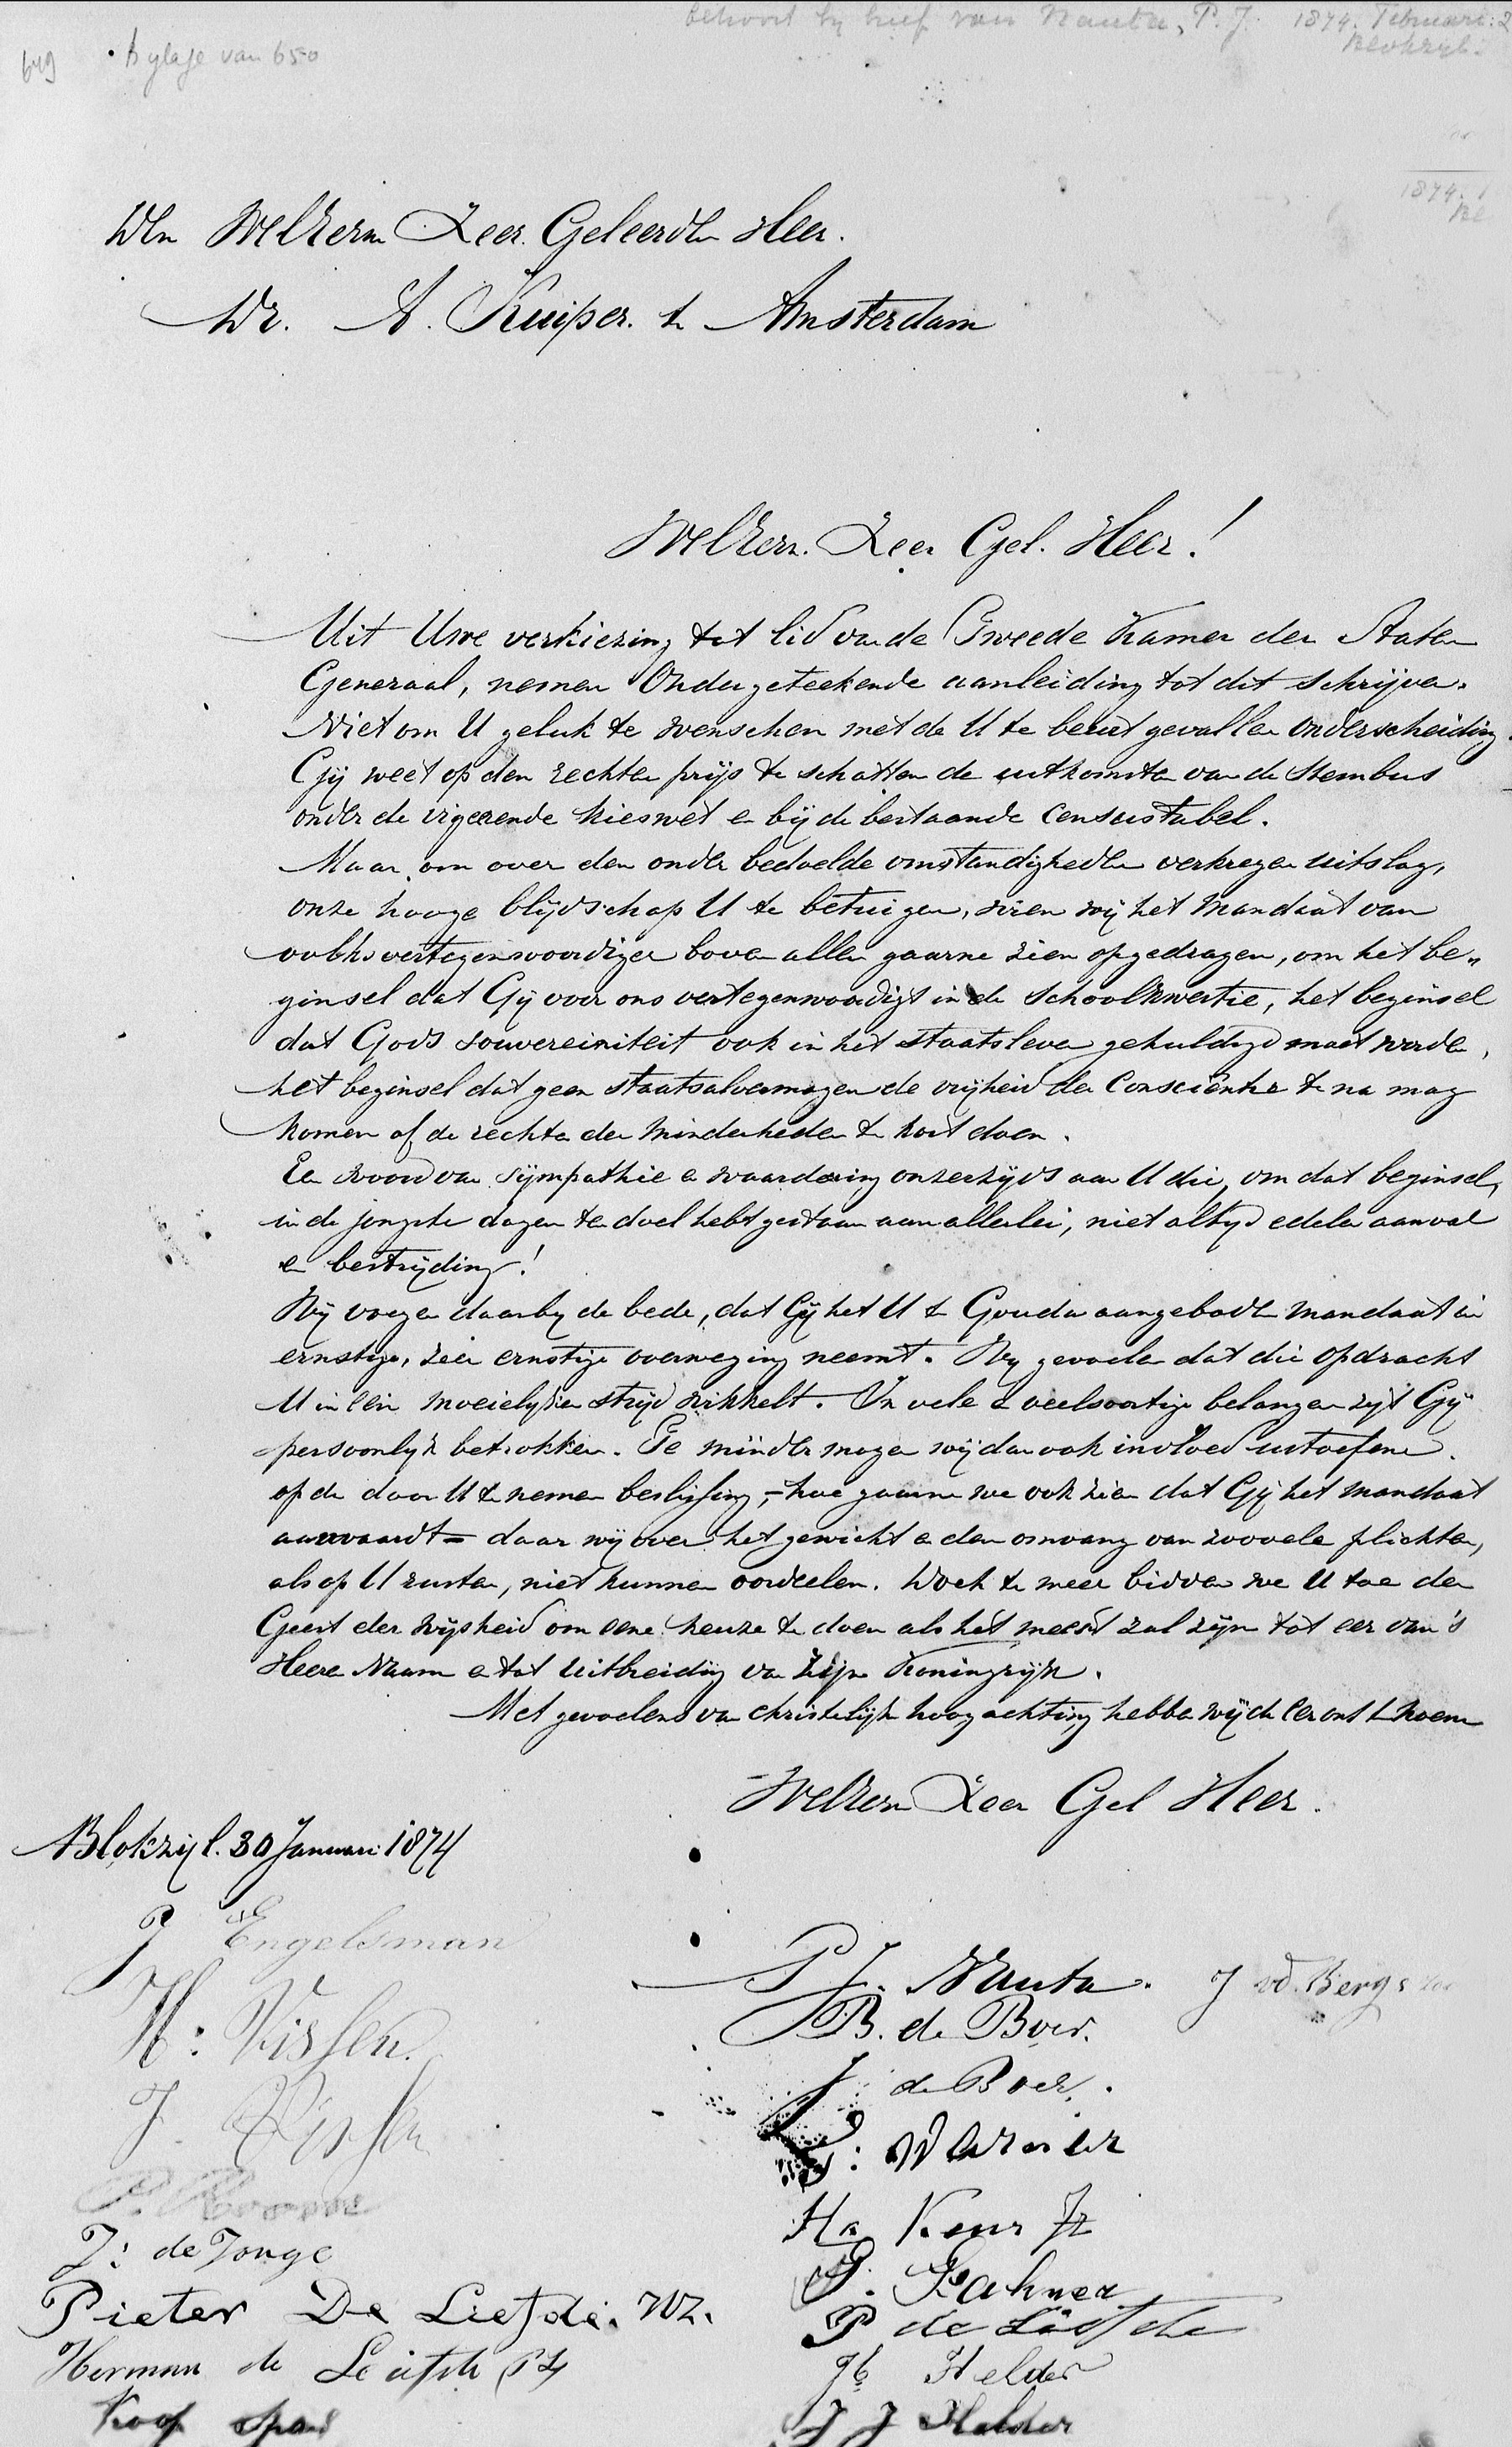 behoort bij brief van Nauta, P.J. 1874. Februari: 2
Blokzijl.
649 Bylage van 650
1874. 1
Bl
Den WelEerw Zeer Geleerden Heer.
Dr. A. Kuiper. te Amsterdam
WelEerw. Zeer Gel. Heer!
Uit Uwe verkiezing tot lid van de Tweede Kamer der Staten
Generaal, nemen Ondergeteekende aanleiding tot dit schrijven.
Niet om U geluk te wenschen met de U te beurt gevallen onderscheiding.
Gij weet op den rechten prijs te schatten de uitkomsten van de stembus
onder de vigeerende kieswet en bij de bestaande censustabel.
Maar om over den onder bedoelde omstandigheden verkregen uitslag,
onze hooge blijdschap U te betuigen, wien wij het mandaat van
volksvertegenwoordiger boven allen gaarne zien opgedragen, om het be„
ginsel dat Gij voor ons vertegenwoordigt in de schoolkwestie, het beginsel
dat Gods souvereiniteit ook in het staatsleven gehuldigd moet worden,
het beginsel dat geen staatsalvermogen de vrijheid der Consciëntie te na mag
komen of de rechten der minderheden te kort doen.
Een woord van sympathie en waardering onzerzijds aan U die, om dat beginsel,
in de jongste dagen ten doel hebt gestaan aan allerlei, niet altijd edelen aanval
en bestrijding!
Wij voegen daarby de bede, dat Gij het U te Gouda aangeboden mandaat in
ernstige, zeer ernstige overweging neemt. Wij gevoelen dat die opdracht
U in een moeielyken strijd wikkelt. In vele en veelsoortige belangen zijt Gij
persoonlijk betrokken. Te minder mogen wij dan ook invloed uitoefenen
op de door U te nemen beslissing, - hoe gaarne we ook zien dat Gij het mandaat
aanvaardt = daar wij over het gewicht en den omvang van zoovele plichten,
als op U rusten, niet kunnen oordeelen. Doch te meer bidden we U toe den
Geest der wijsheid om eene keuze te doen als het meest zal zijn tot eer van 's
Heeren Naam en tot uitbreiding van Zijn Koningrijk.
Met gevoelens van christelijke hoogachting hebben wij de eer ons te noemen
WelEerw Zeer Gel Heer.
Blokzijl. 30 Januari 1874
J Engelsman
P J. Nauta. J vd. Berg
H: Visser.
B. de Boer.
J. Visser
J de Boer.
J: de Jonge
Ha Keur Jz
Pieter De Liefde. Wz.
P de Liefde
Herman de Liefde Pz
Jb Helder
Koop Spans
J J Helder